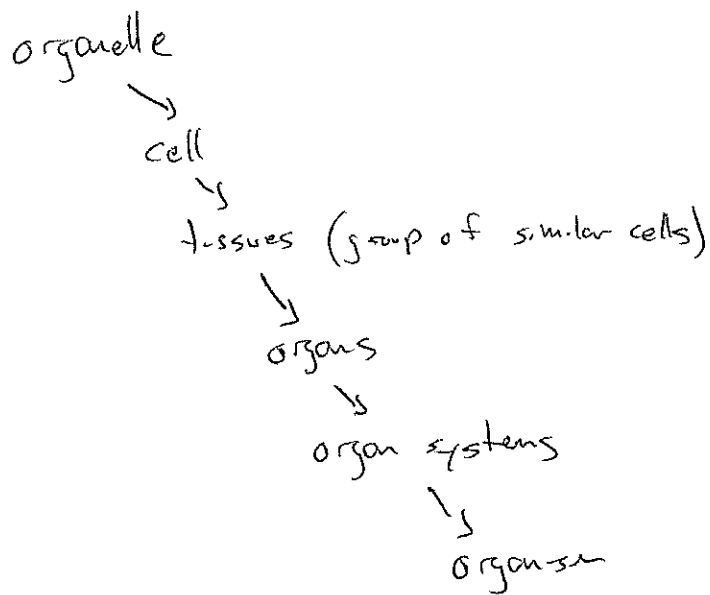 organelle
cell
tissues (group of similar cells)
organs
organ systems
organism